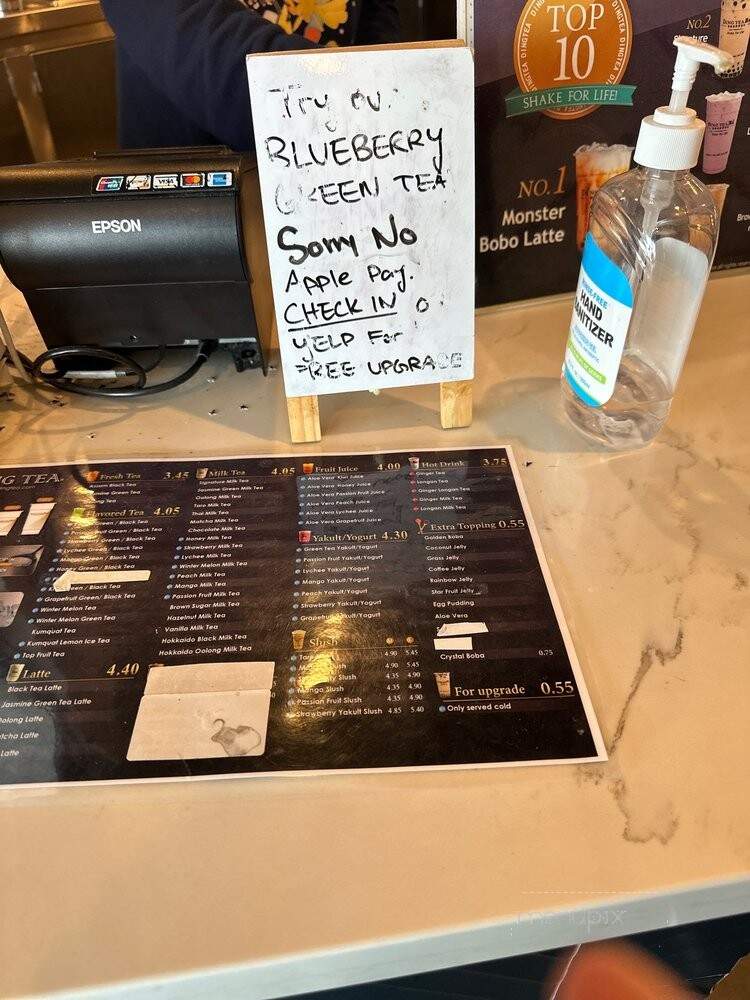 DINGTEA DINGTEA
TOP
10
SHAKE FOR LIFE!
NO.2
NO.1
Monster
Bobo Latte
EPSON
VISA
BLUEBERRY
GREEN TEA
Sorry No
Apple Pay.
CHECK IN
YELP For
FREE UPGRADE
HAND
SANITIZER
TEA
Fresh Tea 3.45
Assam Black Tea
Jasmine Green Tea
Flavored Tea 4.05
Green / Black Tea
Green / Black Tea
Strawberry Green / Black Tea
Lychee Green / Black Tea
Mango Green / Black Tea
Honey Green / Black Tea
Green / Black Tea
Grapefruit Green / Black Tea
Winter Melon Tea
Winter Melon Green Tea
Kumquat Tea
Kumquat Lemon Ice Tea
Top Fruit Tea
Latte 4.40
Black Tea Latte
Jasmine Green Tea Latte
Oolong Latte
Matcha Latte
Latte
Milk Tea 4.05
Signature Milk Tea
Jasmine Green Milk Tea
Oolong Milk Tea
Taro Milk Tea
Thai Milk Tea
Matcha Milk Tea
Chocolate Milk Tea
Honey Milk Tea
Strawberry Milk Tea
Lychee Milk Tea
Winter Melon Milk Tea
Peach Milk Tea
Mango Milk Tea
Passion Fruit Milk Tea
Brown Sugar Milk Tea
Hazelnut Milk Tea
Vanilla Milk Tea
Hokkaido Black Milk Tea
Hokkaido Oolong Milk Tea
Fruit Juice 4.00
Aloe Vera Kiwi Juice
Aloe Vera Honey Juice
Aloe Vera Passion Fruit Juice
Aloe Vera Peach Juice
Aloe Vera Lychee Juice
Aloe Vera Grapefruit Juice
Yakult/Yogurt 4.30
Green Tea Yakult/Yogurt
Passion Fruit Yakult/Yogurt
Lychee Yakult/Yogurt
Mango Yakult/Yogurt
Peach Yakult/Yogurt
Strawberry Yakult/Yogurt
Grapefruit Yakult/Yogurt
Slush
Taro Slush 4.90 5.45
Slush 4.90 5.45
Slush 4.35 4.90
Mango Slush 4.35 4.90
Passion Fruit Slush 4.35 4.90
Strawberry Yakult Slush 4.85 5.40
Hot Drink 3.75
Ginger Tea
Longan Tea
Ginger Longan Tea
Ginger Milk Tea
Longan Milk Tea
Extra Topping 0.55
Golden Boba
Coconut Jelly
Grass Jelly
Coffee Jelly
Rainbow Jelly
Star Fruit Jelly
Egg Pudding
Aloe Vera
Crystal Boba 0.75
For upgrade 0.55
Only served cold